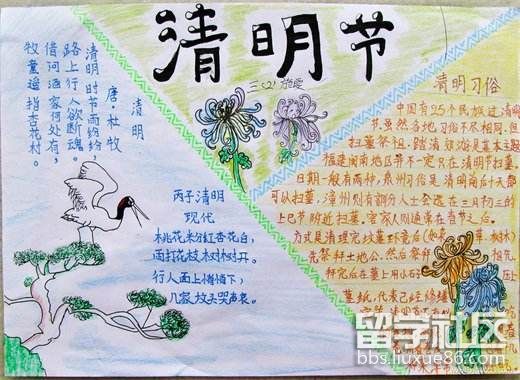 清明节
三(2)
清明
唐·杜牧
清明时节雨纷纷,
路上行人欲断魂。
借问酒家何处有,
牧童遥指杏花村。
丙子清明
现代
桃花粉红杏花白,
雨打花枝树树开。
行人面上悄悄下,
几家坟头哭声哀。
清明习俗
中国有25个民族过清明
节,虽然各地习俗不尽相同,但
扫墓祭祖、踏青郊游是基本主题
福建闽南地区并不一定只在清明节扫墓。
日期一般有两种,泉州习俗是清明前后十天都
可以扫墓,漳州则有部分人士会选在三月初三的
上巳节附近扫墓。客家人则通常在春节之后。
方式是清理完坟墓环境后(如
先祭拜土地公,然后祭拜 祖先
拜完后在墓上用小石
墓纸,代表已经修缮
留学社区
bbs.liuxue86.com